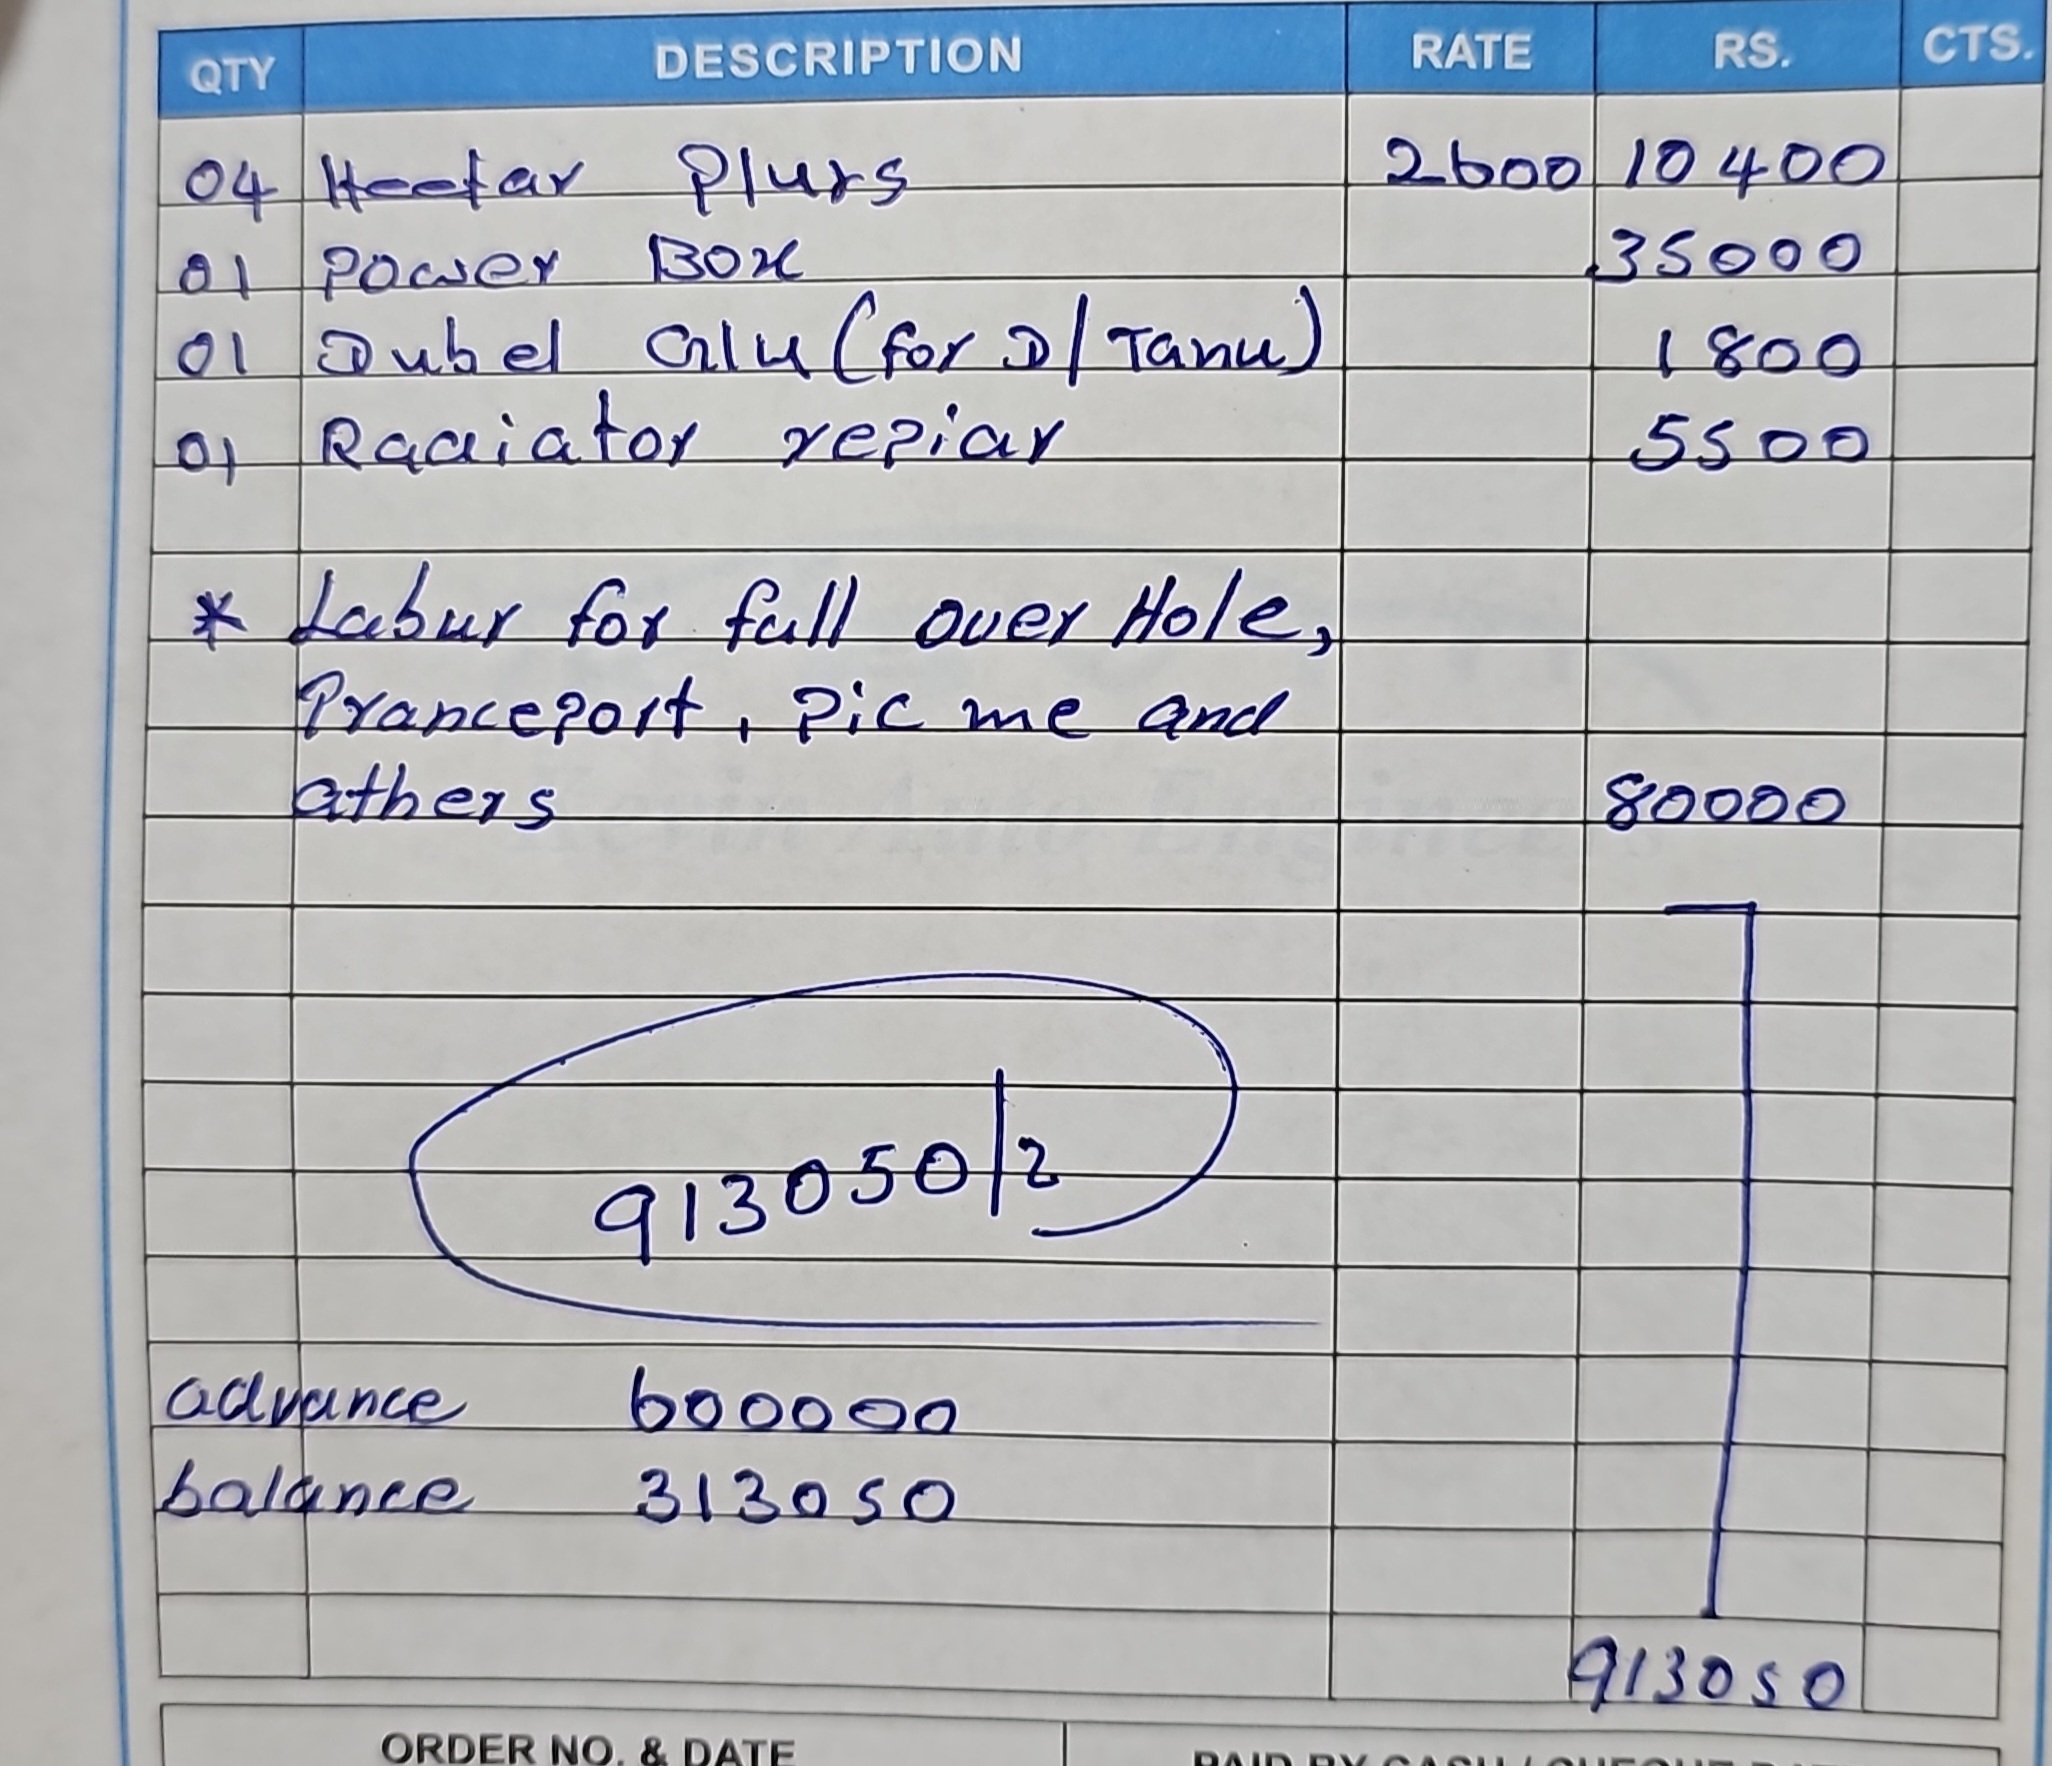 QTY DESCRIPTION RATE RS. CTS.
04 Heetar Plugs 2600 10400
01 Power Box 35000
01 Dubel (for D/Tanu) 1800
01 Radiator repiar 5500
* Labur for full over Hole,
Pranceport, Pic me and
athers 80000
913050/2
advance 600000
balance 313050
913050
ORDER NO. & DATE